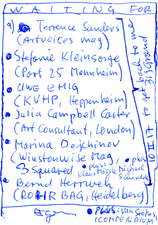 WAITING FOR
Terrence Sanders
(Artvoices mag)
Stefanie Kleinsorge
(Port 25 Mannheim)
UWE EMIG
(KVHP, Heppenheim)
Julia Campbell Carter
(Art Consultant, London)
Marina Dojchinov
(Winstonwise Mag,
Squared plus
Bernd Herrweh
(ROHRBAG, Heidelberg)
plus:
(COMPENDIUM)
to get back to me